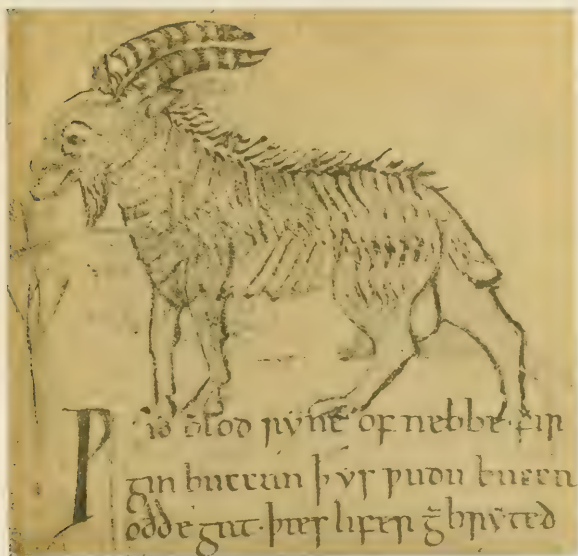 Ƿið blod ryne of nebbe· fir
gin buccan ꝥ ys ƿudu buccan
oððe gat· þæs lifer ḡ bryted